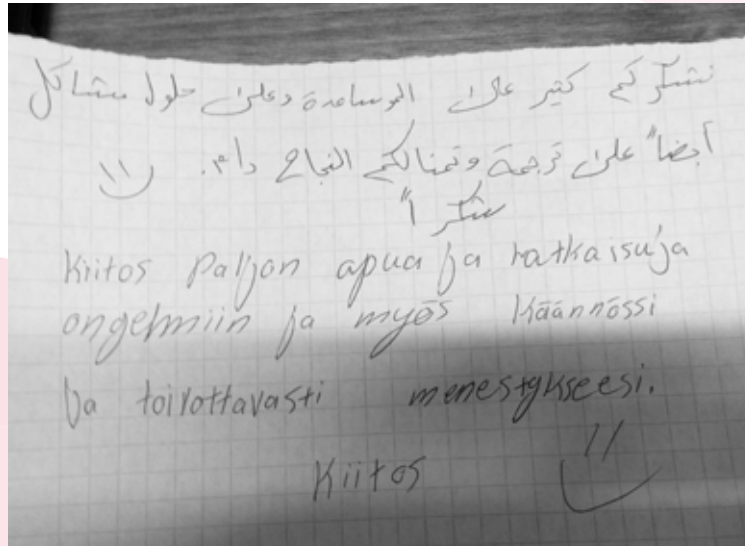 نشكركم كتير على الموساعدة وعلى حلول مشاكل
أيضاً على ترجمة وتمنالكم النجاح دائم.
شكراً
Kiitos Paljon apua ja ratkaisuja
ongelmiin ja myös käännössi
Ja toivottavasti menestykseesi.
Kiitos